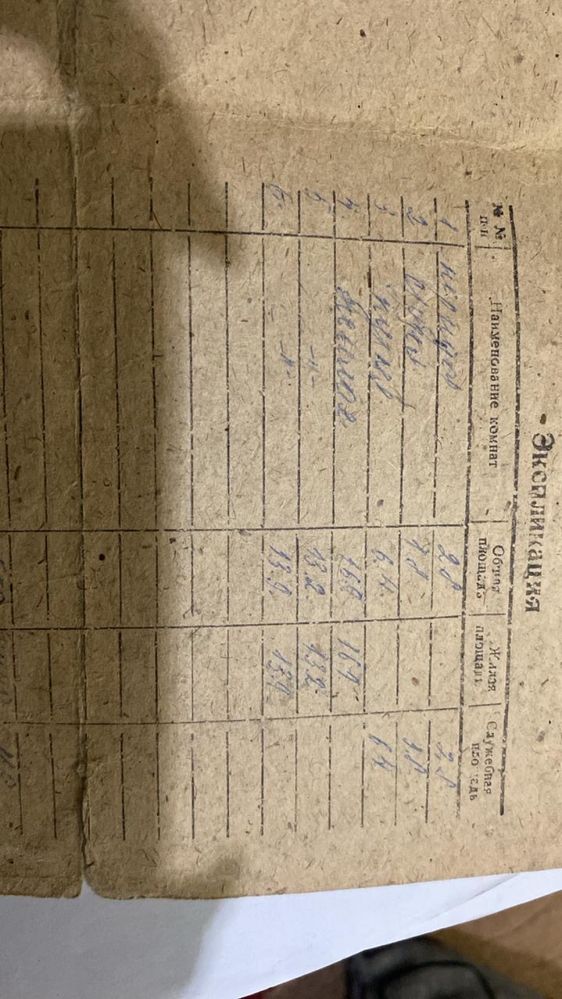 Экспликация
№ № п-п Наименование комнат Общая площадь Жилая площадь Служебная площадь
1 коридор 2.8 2.8
2 1.8 1.8
3 кухня 6.4 6.4
4. жилая 16.9 16.9
5. -„- 13.2 13.2
6. -„- 13.9 13.9